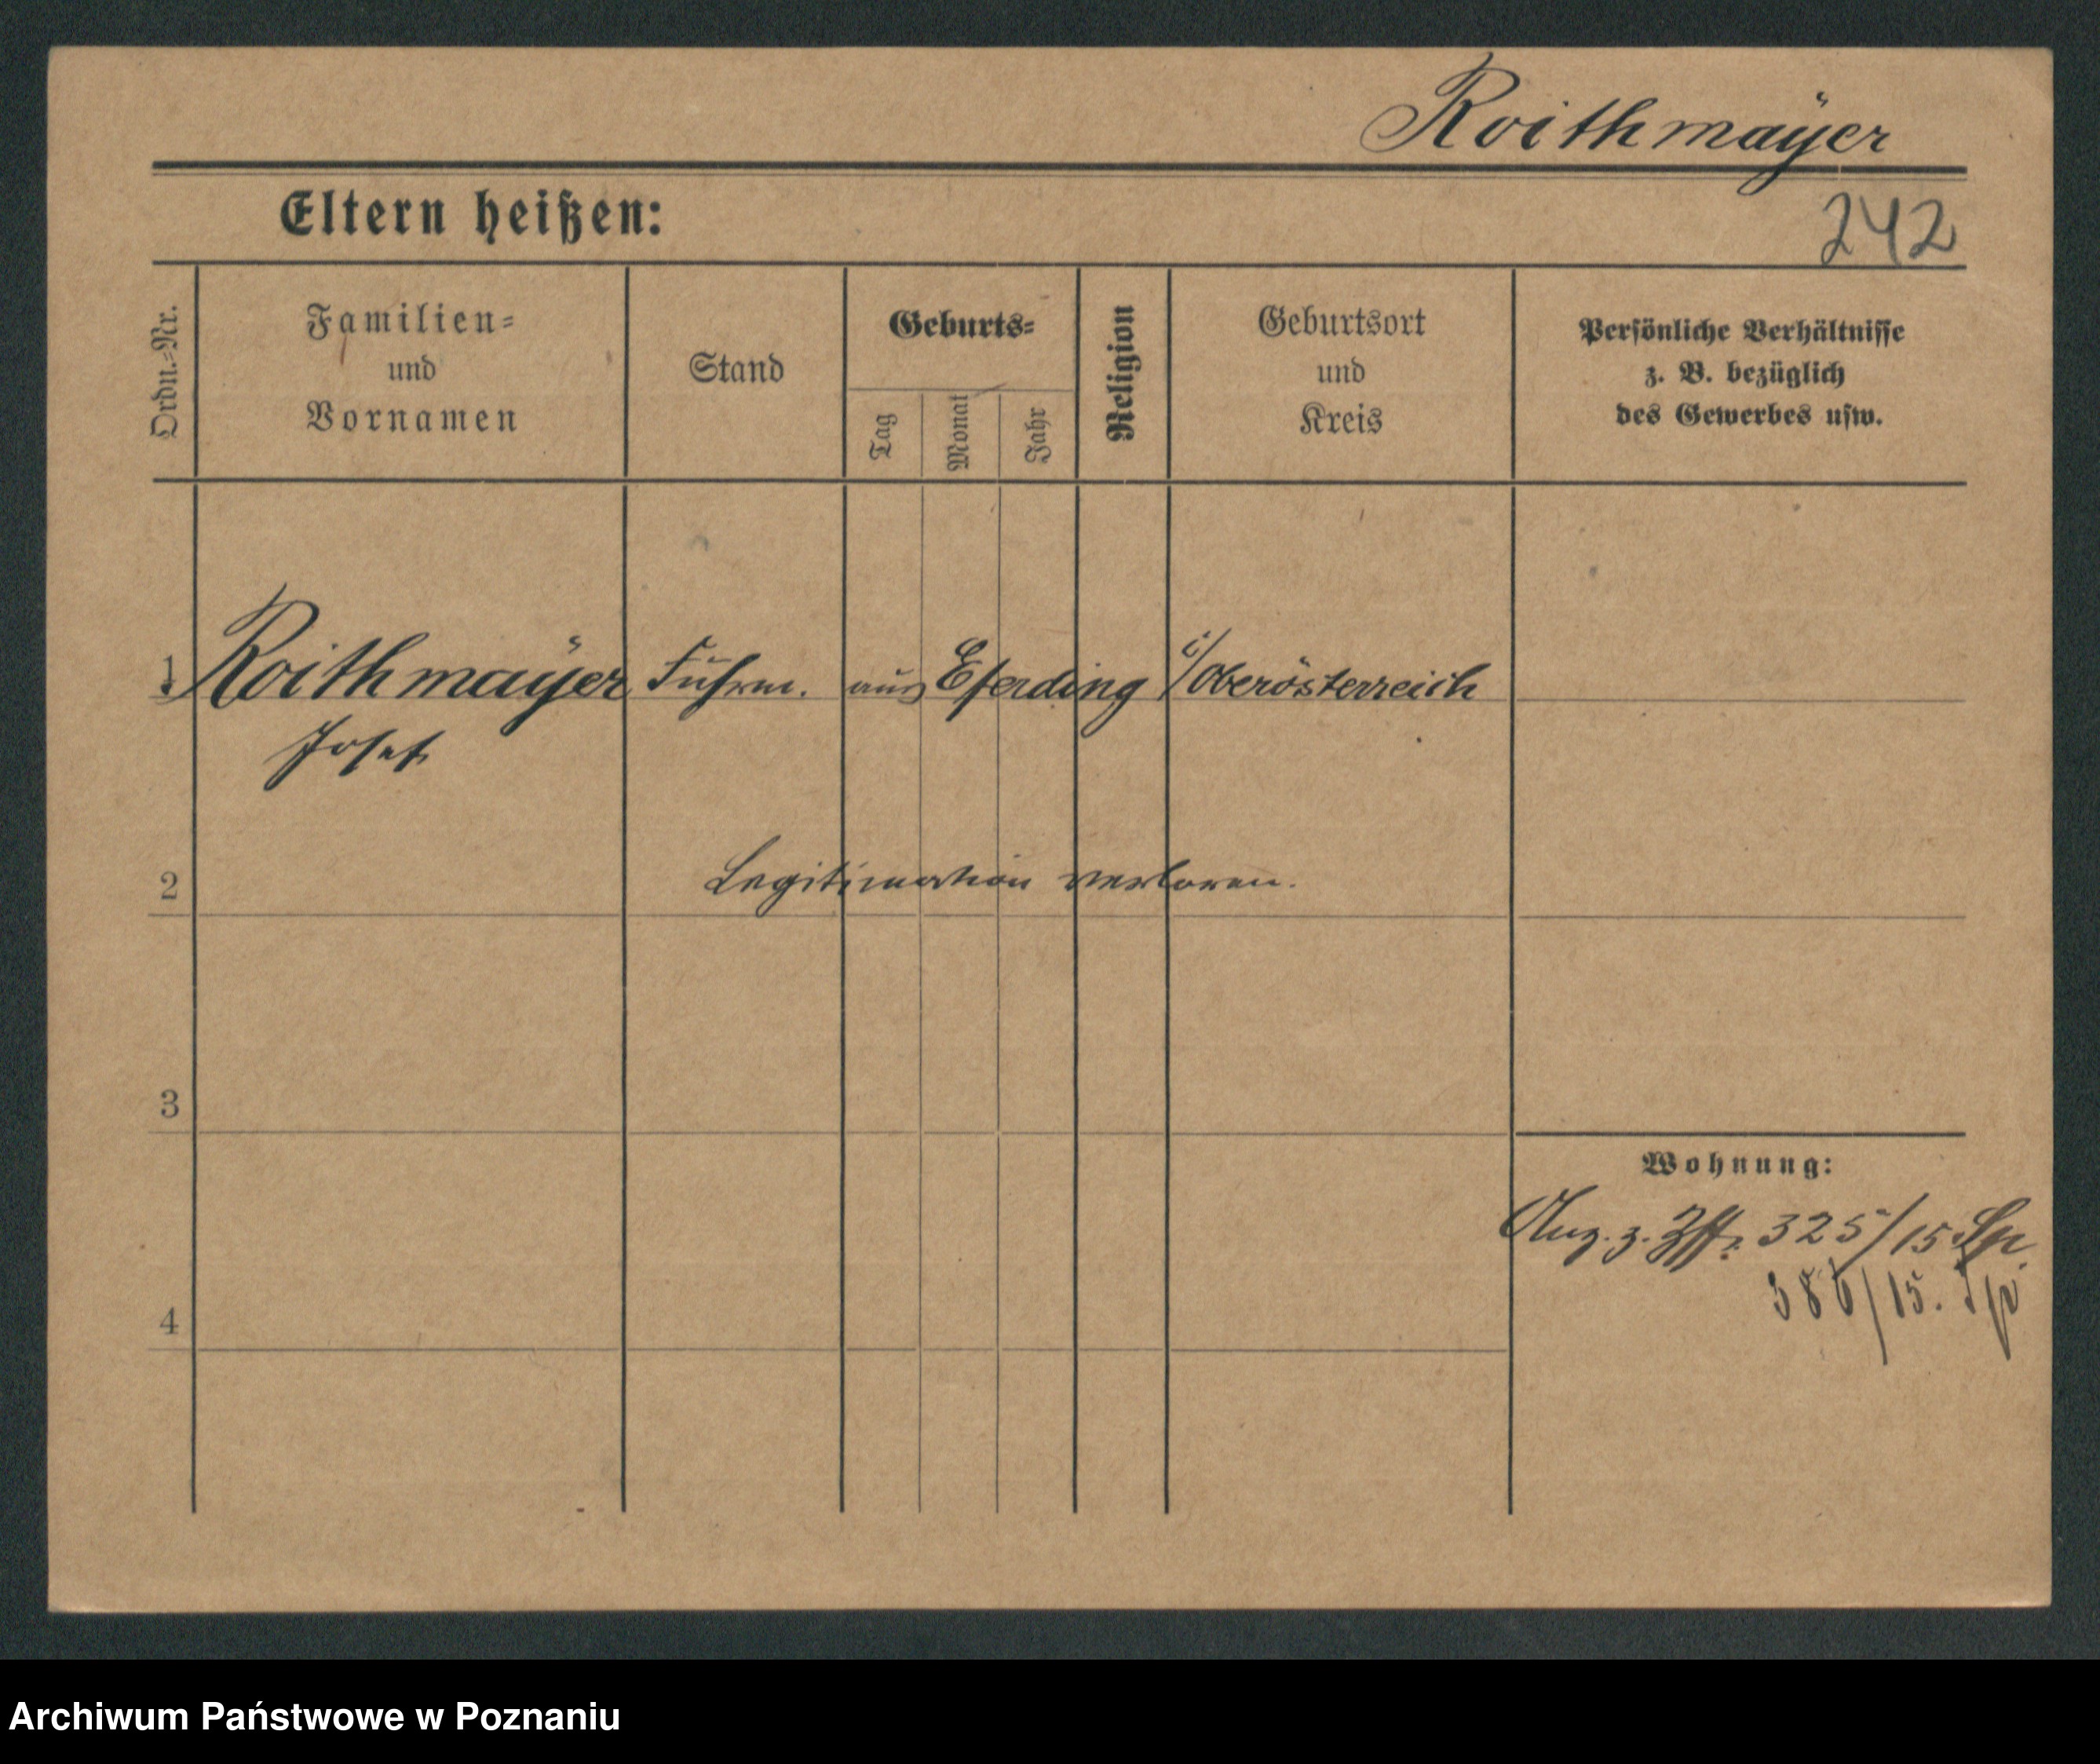 Roithmaÿer
Eltern heißen:
242
Ordn.=Nr.
Familien=
und
Vornamen
Stand
Geburts=
Tag
Monat
Jahr
Religion
Geburtsort
und
Kreis
Persönliche Verhältnisse
z. B. bezüglich
des Gewerbes usw.
1 Roithmaÿer Fuhrm. aus Eferding i/Oberösterreich
Josef
2 Legitimation verloren.
3
Wohnung:
Anz. z. 325/15 Sp.
386/15. Sp
4
Archiwum Państwowe w Poznaniu